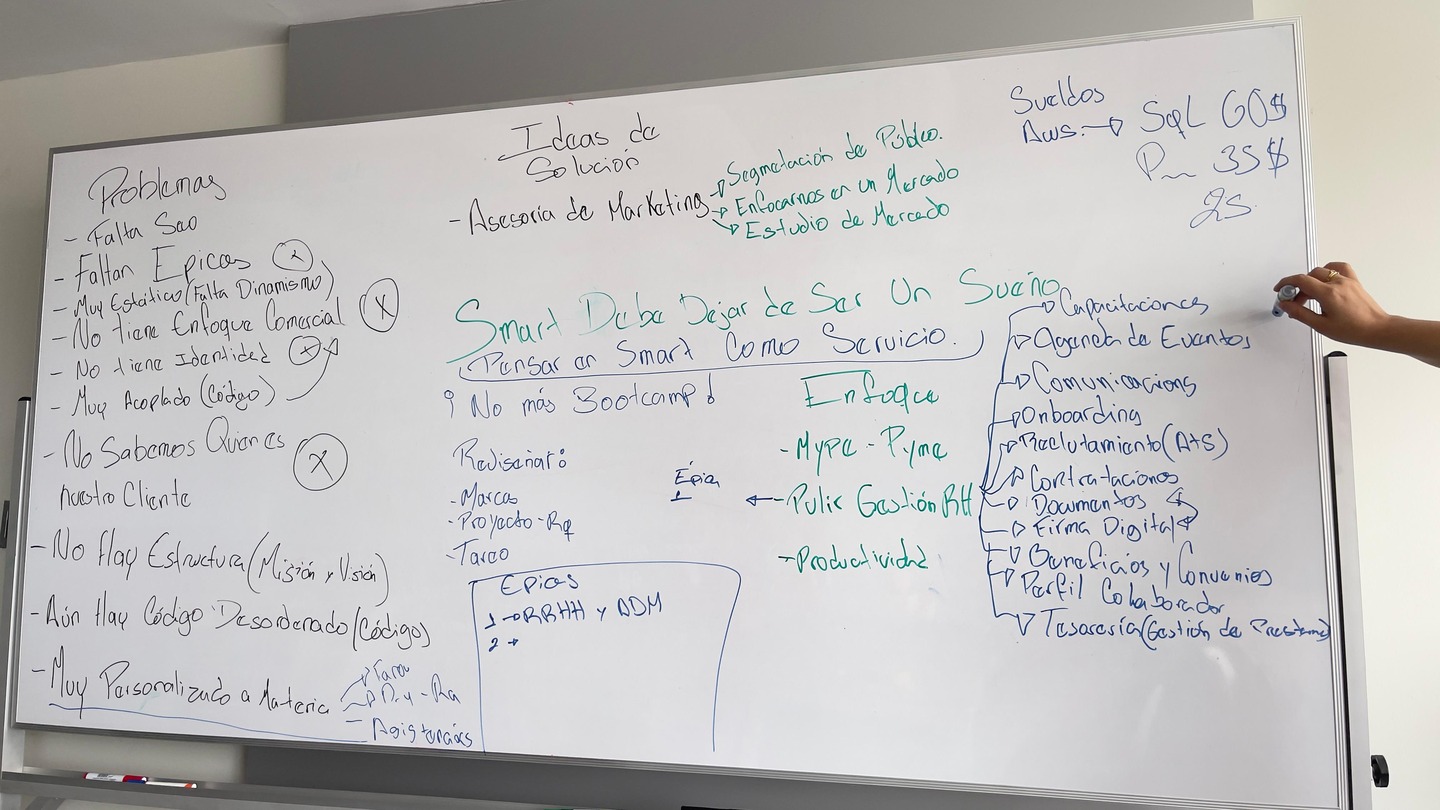 Problemas
- Falta Seo
- Faltan Epicas x
- Muy Estático (Falta Dinamismo)
- No tiene Enfoque Comercial x
- No tiene Identidad x
- Muy Acoplado (Código)
- No Sabemos Quien es x
nuestro Cliente
- No Hay Estructura (Misión y Visión)
- Aún Hay Código Desordenado (Código)
- Muy Personalizado a Materia
Tarea
Asistencias
Ideas de
Solución
- Asesoría de Marketing
Segmetación de Público.
Enfocarnos en un Mercado
Estudio de Mercado
Smart Debe Dejar de Ser Un Sueño
Pensar en Smart Como Servicio.
¡No más Bootcamp!
Rediseñar:
- Marcas
- Proyecto - Rq
- Tarea
Épica
1
Epicas
1 → RRHH y ADM
2 →
Enfoque
- MYPE - Pyme
← - Pulir Gestión RH
- Productividad
Capacitaciones
Agenda de Eventos
Comunicacions
Onboarding
Reclutamiento (ATS)
Contrataciones
Documentos
Firma Digital
Beneficios y Convenios
Perfil Colaborador
Tesorería (Gestión de Prestamo)
Sueldos
Aws: → SqL 60$
35$
25